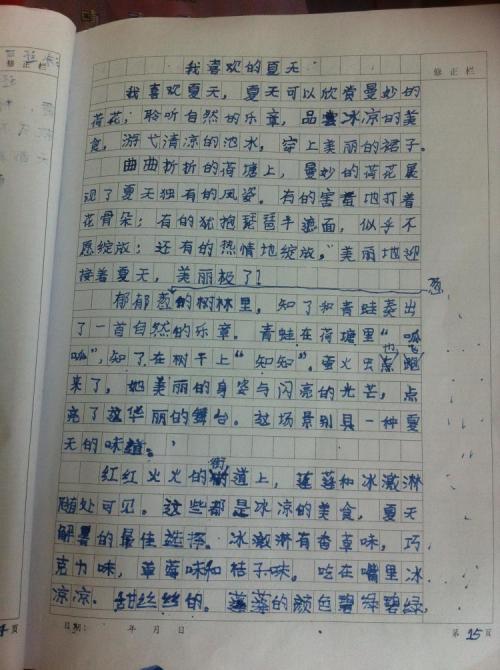 修正栏
修正栏
我喜欢的夏天
我喜欢夏天，夏天可以欣赏曼妙的
荷花，聆听自然的乐章，品尝冰凉的美
食，游弋清凉的池水，穿上美丽的裙子。
曲曲折折的荷塘上，曼妙的荷花展
现了夏天独有的风姿。有的害羞地打着
花骨朵；有的犹抱琵琶半遮面，似乎不
愿绽放；还有的热情地绽放，美丽地迎
接着夏天，美丽极了！
葱
郁郁葱的树林里，知了和青蛙奏出
了一首自然的乐章。青蛙在荷塘里“呱
呱”，知了在树干上“知知”。萤火虫也飞
来了，她美丽的身姿与闪亮的光芒，点
亮了这华丽的舞台。这场景别具一种夏
天的味道。
街
红红火火的道上，莲蓬和冰激淋
随处可见。这些都是冰凉的美食，夏天
解暑的最佳选择。冰激淋有香草味，巧
克力味，草莓味和桔子味。吃在嘴里冰
凉凉，甜丝丝的。莲蓬的颜色碧绿碧绿，
日期： 年 月 日
第15页
页